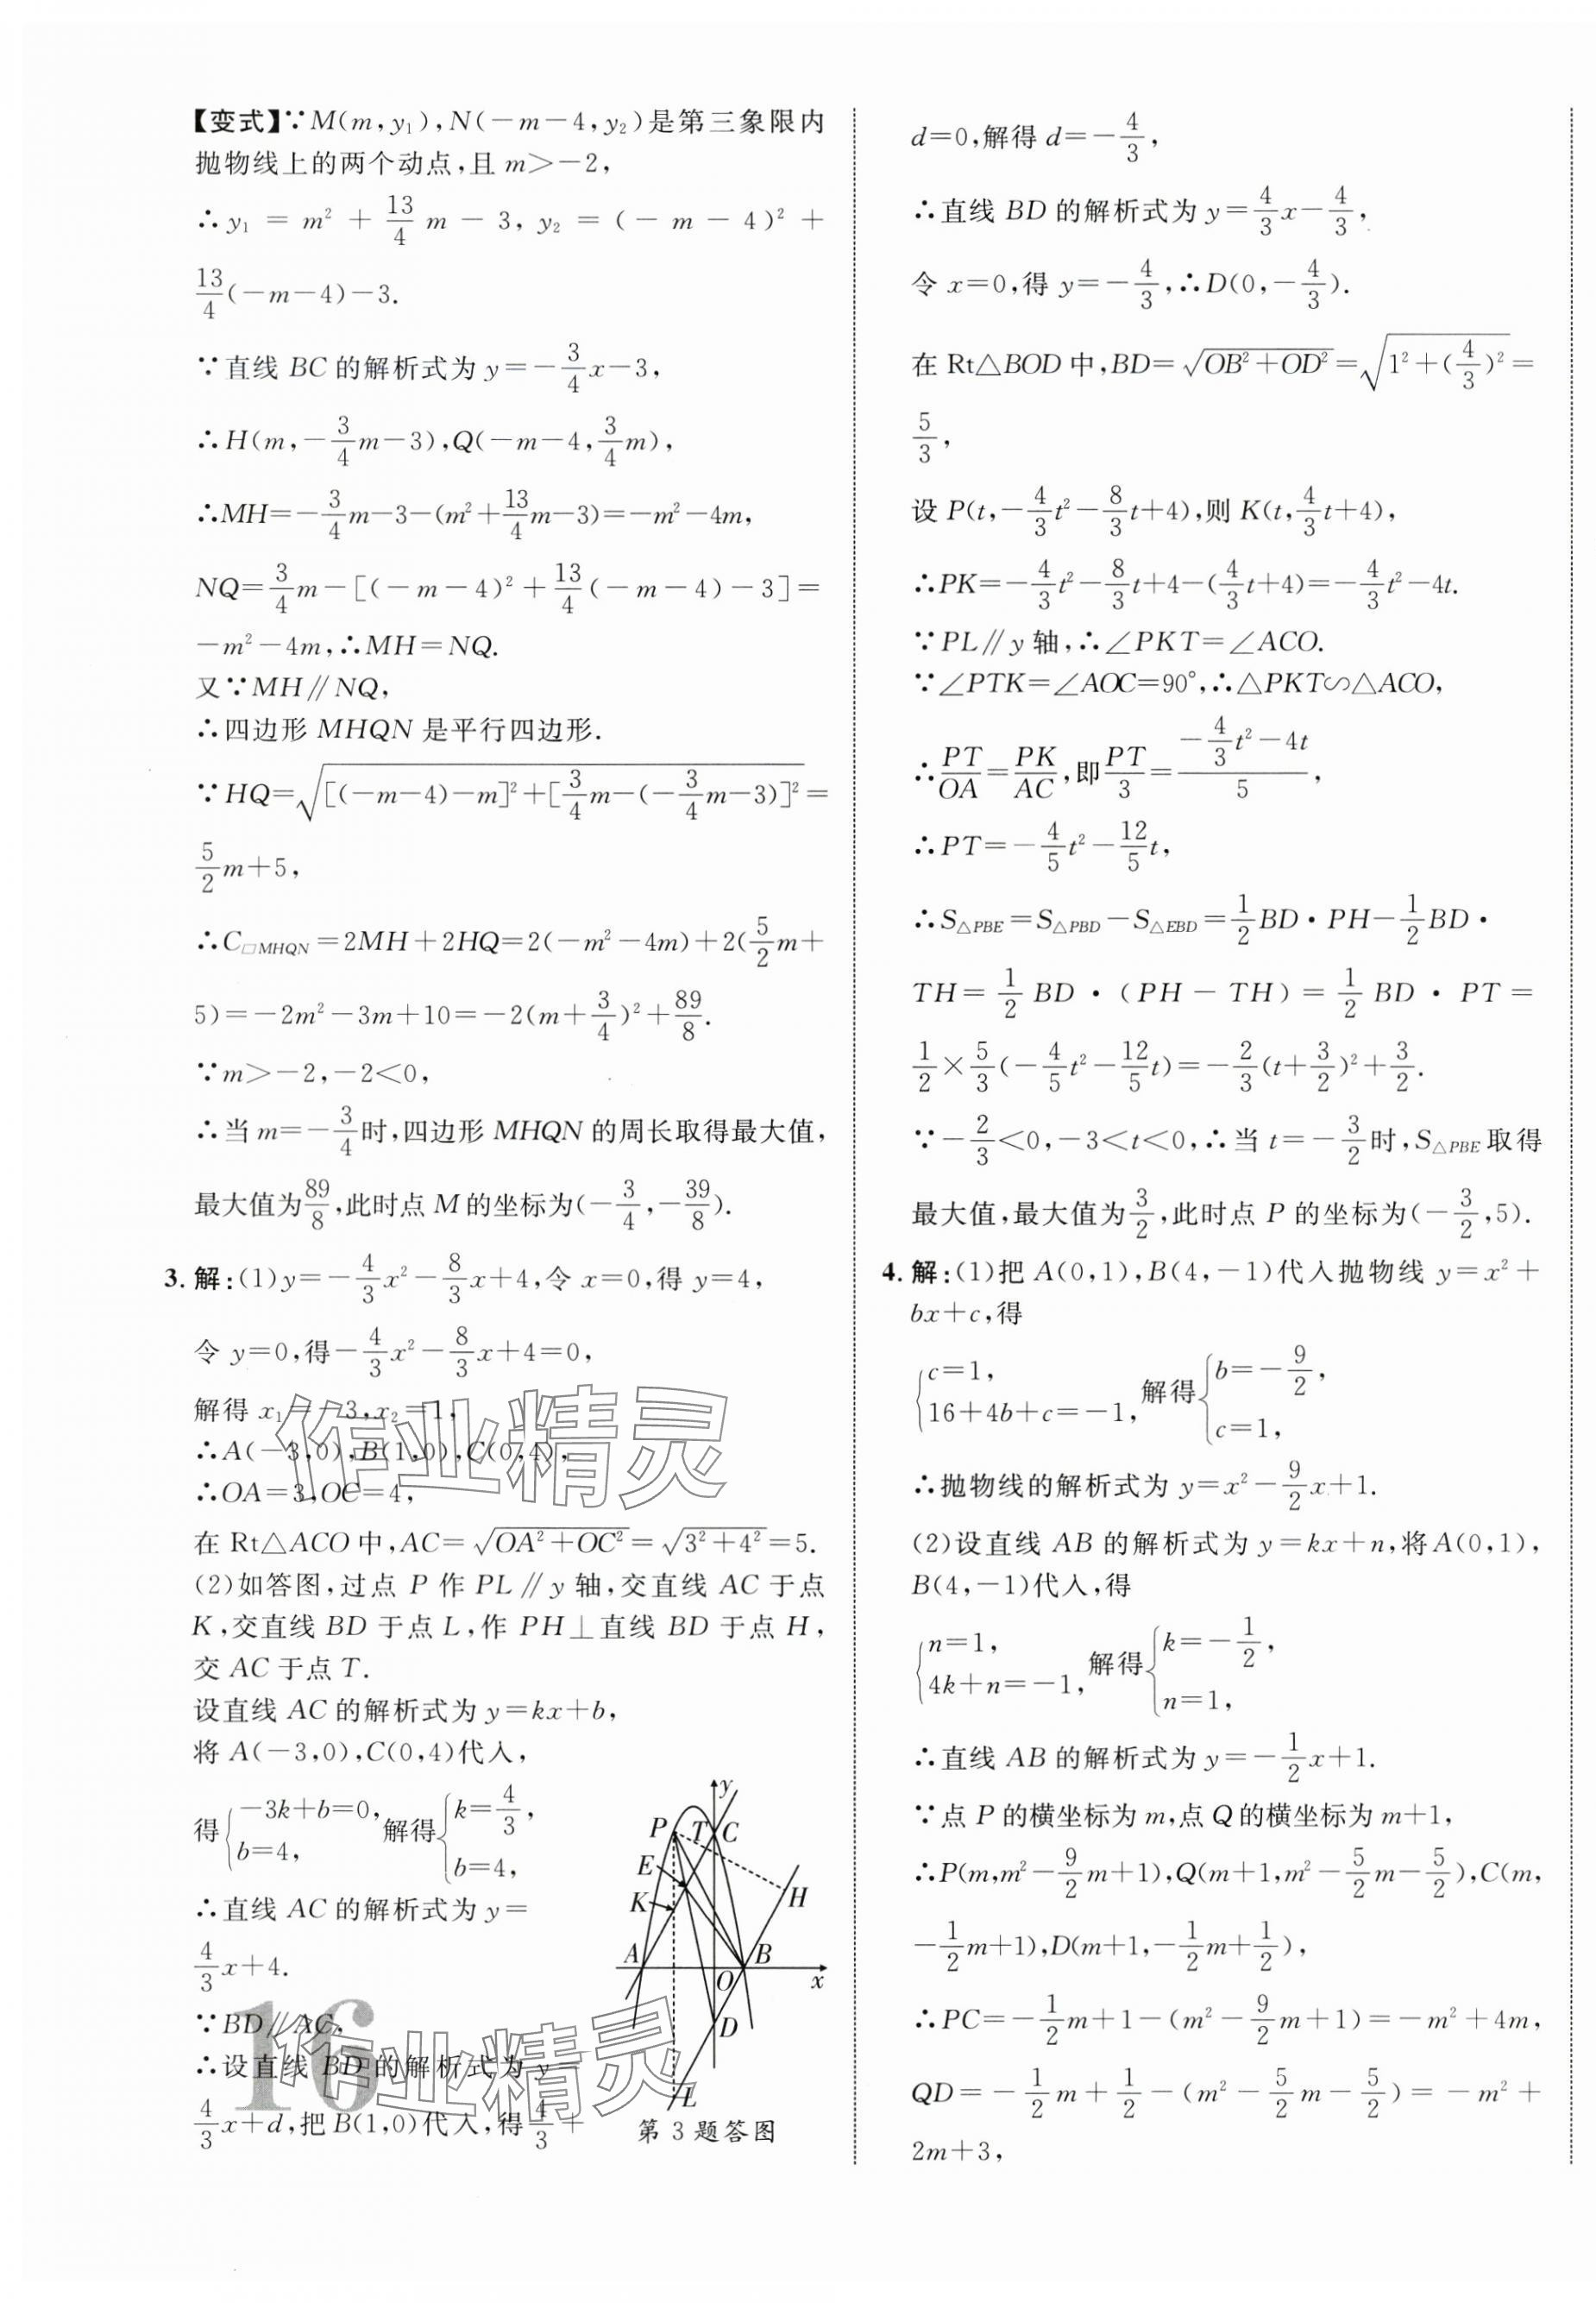 【变式】∵M(m,y₁),N(－m－4,y₂)是第三象限内
抛物线上的两个动点,且 m＞－2,
∴y₁＝m²＋13/4 m－3,y₂＝(－m－4)²＋
13/4(－m－4)－3.
∵直线 BC 的解析式为 y＝－3/4x－3,
∴H(m,－3/4m－3),Q(－m－4,3/4m),
∴MH＝－3/4m－3－(m²＋13/4m－3)＝－m²－4m,
NQ＝3/4m－[(－m－4)²＋13/4(－m－4)－3]＝
－m²－4m,∴MH＝NQ.
又∵MH∥NQ,
∴四边形 MHQN 是平行四边形.
∵HQ＝√([(－m－4)－m]²＋[3/4m－(－3/4m－3)]²)＝
5/2m＋5,
∴C□MHQN＝2MH＋2HQ＝2(－m²－4m)＋2(5/2m＋
5)＝－2m²－3m＋10＝－2(m＋3/4)²＋89/8.
∵m＞－2,－2＜0,
∴当 m＝－3/4时,四边形 MHQN 的周长取得最大值,
最大值为89/8,此时点 M 的坐标为(－3/4,－39/8).
3. 解:(1)y＝－4/3x²－8/3x＋4,令 x＝0,得 y＝4,
令 y＝0,得－4/3x²－8/3x＋4＝0,
解得 x₁＝－3,x₂＝1,
∴A(－3,0),B(1,0),C(0,4),
∴OA＝3,OC＝4,
在 Rt△ACO 中,AC＝√(OA²＋OC²)＝√(3²＋4²)＝5.
(2)如答图,过点 P 作 PL∥y 轴,交直线 AC 于点
K,交直线 BD 于点 L,作 PH⊥直线 BD 于点 H,
交 AC 于点 T.
设直线 AC 的解析式为 y＝kx＋b,
将 A(－3,0),C(0,4)代入,
得{－3k＋b＝0, b＝4, 解得{k＝4/3, b＝4,
∴直线 AC 的解析式为 y＝
4/3x＋4.
∵BD∥AC,
∴设直线 BD 的解析式为 y＝
4/3x＋d,把 B(1,0)代入,得4/3＋
y
P T C
E
H
K
A B
O x
D
L
第 3 题答图
16
作业精灵
作业精灵
d＝0,解得 d＝－4/3,
∴直线 BD 的解析式为 y＝4/3x－4/3,
令 x＝0,得 y＝－4/3,∴D(0,－4/3).
在 Rt△BOD 中,BD＝√(OB²＋OD²)＝√(1²＋(4/3)²)＝
5/3,
设 P(t,－4/3t²－8/3t＋4),则 K(t,4/3t＋4),
∴PK＝－4/3t²－8/3t＋4－(4/3t＋4)＝－4/3t²－4t.
∵PL∥y 轴,∴∠PKT＝∠ACO.
∵∠PTK＝∠AOC＝90°,∴△PKT∽△ACO,
∴PT/OA＝PK/AC,即PT/3＝(－4/3t²－4t)/5,
∴PT＝－4/5t²－12/5t,
∴S△PBE＝S△PBD－S△EBD＝1/2BD·PH－1/2BD·
TH＝1/2BD·(PH－TH)＝1/2BD·PT＝
1/2×5/3(－4/5t²－12/5t)＝－2/3(t＋3/2)²＋3/2.
∵－2/3＜0,－3＜t＜0,∴当 t＝－3/2时,S△PBE取得
最大值,最大值为3/2,此时点 P 的坐标为(－3/2,5).
4. 解:(1)把 A(0,1),B(4,－1)代入抛物线 y＝x²＋
bx＋c,得
{c＝1, 16＋4b＋c＝－1, 解得{b＝－9/2, c＝1,
∴抛物线的解析式为 y＝x²－9/2x＋1.
(2)设直线 AB 的解析式为 y＝kx＋n,将A(0,1),
B(4,－1)代入,得
{n＝1, 4k＋n＝－1, 解得{k＝－1/2, n＝1,
∴直线 AB 的解析式为 y＝－1/2x＋1.
∵点 P 的横坐标为 m,点 Q的横坐标为 m＋1,
∴P(m,m²－9/2m＋1),Q(m＋1,m²－5/2m－5/2),C(m,
－1/2m＋1),D(m＋1,－1/2m＋1/2),
∴PC＝－1/2m＋1－(m²－9/2m＋1)＝－m²＋4m,
QD＝－1/2m＋1/2－(m²－5/2m－5/2)＝－m²＋
2m＋3,